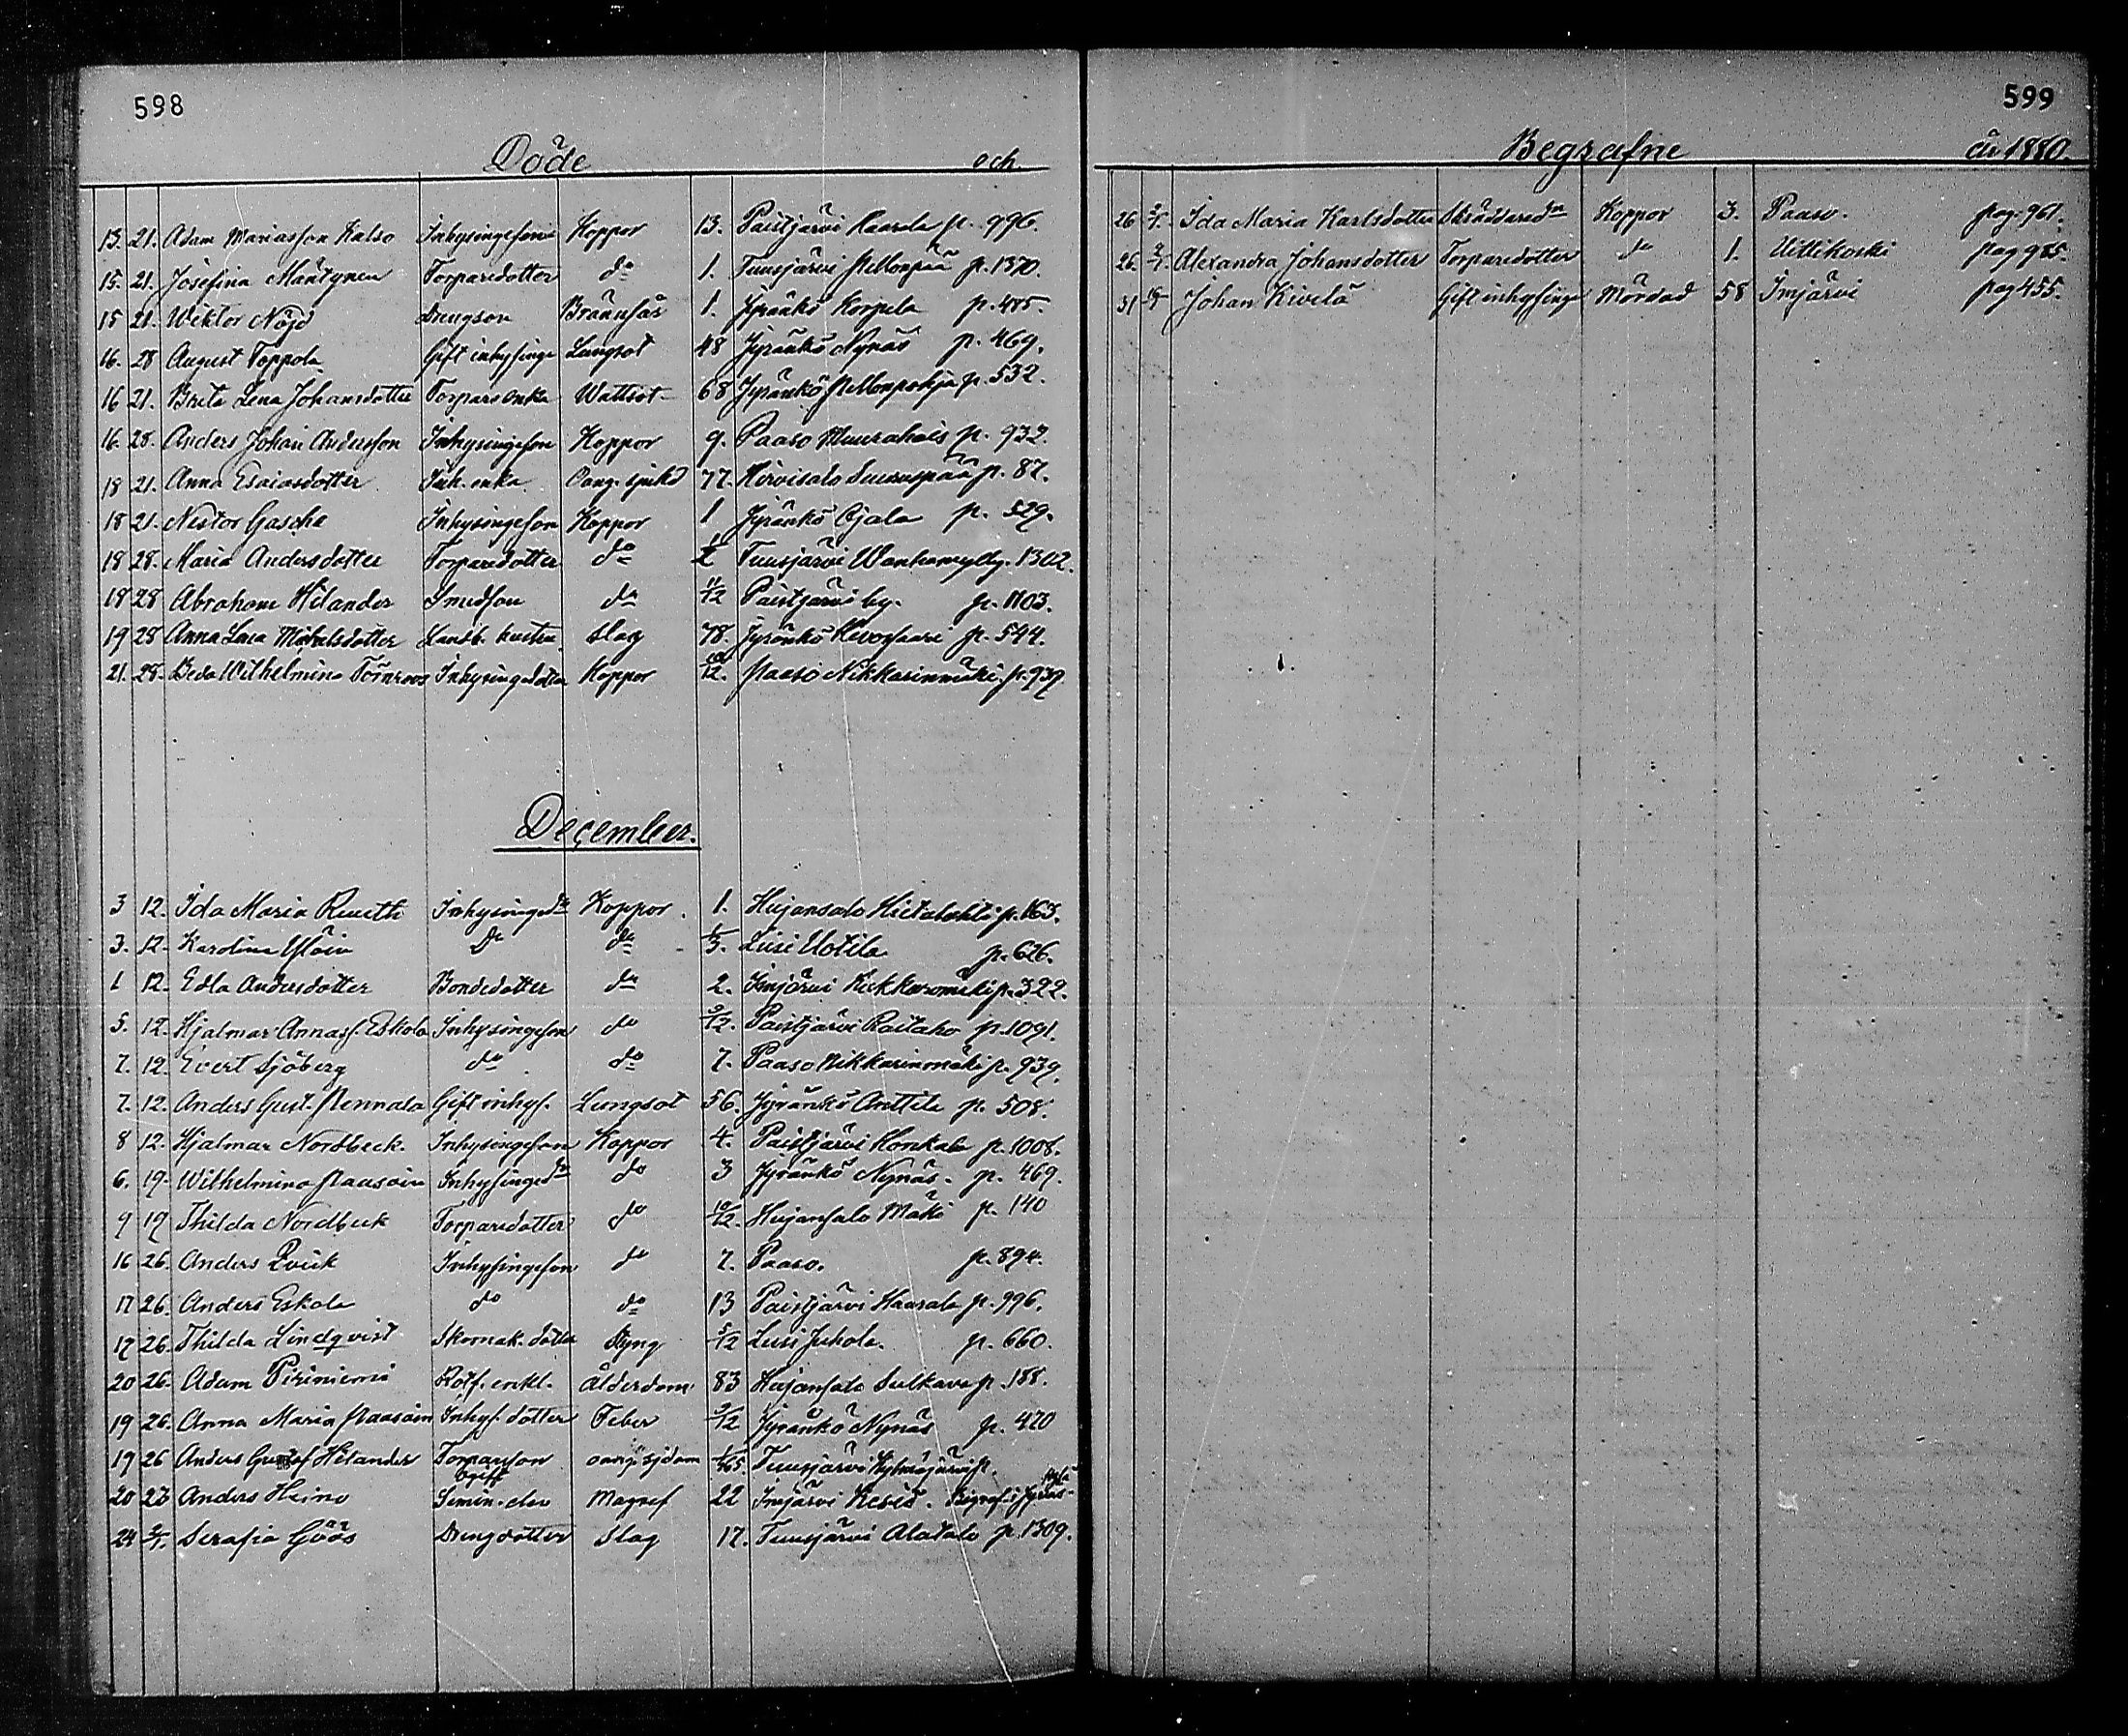 598
Döde och
13. 21. Adam Mariasson Kalso Inhysingeson Koppor 13. Paistjärvi Haarala p. 996.
15. 21. Josefina Mäntynen Torparedotter do 1. Tuusjärvi p. 1370.
15 21. Wiktor Nöjd Drengson Brännsår 1. Jyränkö Korpela p. 475.
16. 28 August Toppola Gift inhysinge Lungsot 48 Jyränkö Nynäs p. 469.
16 21. Brita Lena Johansdotter Torpareenka Wattsot 68 Jyränkö p. 532.
16. 28. Anders Johan Andersson Inhysingeson Koppor 9. Paaso p. 932.
18 21. Anna Esaiasdotter Inh. enka 77. Hirvisalo p. 87.
18 21. Nestor Gascha Inhysingeson Koppor 1 Jyränkö Ojala p. 529.
18 28. Maria Andersdotter Torparedotter do 1/2 Tuusjärvi Wanhamylly. 1302.
18 28 Abraham Hilander Smedson do 11/12 Paistjärvi by. p. 1103.
19 28 Anna Lena Mickelsdotter Landb. hustru Slag 78. Jyränkö p. 544.
21. 28. Beda Wilhelmina Törnroos Inhysingedotter Koppor 10/12. Paaso Nikkarinmäki. p. 939
December.
3 12. Ida Maria Inhysingedr Koppor. 1. Hujansalo Hietalahti p. 163.
3. 12. Karolina do do Lusi Uotila p. 626.
1 12. Edla Andersdotter Bondedotter do 2. Imjärvi p. 322.
5. 12. Hjalmar Annass. Eskola Inhysingeson do Paistjärvi Raitaho p. 1091.
7. 12. Evert Sjöberg do do 7. Paaso Nikkarinmäki p. 939.
7. 12. Anders Gust. Pennala Gift inhys. Lungsot 56. Jyränkö Anttila p. 508.
8 12. Hjalmar Nordbeck. Inhysingeson Koppor 4. Paistjärvi Honkala p. 1008.
6. 19. Wilhelmina Paasoin Inhysingedr do 3 Jyränkö Nynäs. p. 469.
9 19 Thilda Nordbeck Torparedotter do 10/12. Hujansalo Mäki p. 140
16 26. Anders Qvick Inhysingeson do 7. Paaso. p. 894.
17 26. Anders Eskola do do 13 Paistjärvi Haarala p. 996.
17 26. Thilda Lindqvist Skomak. dotter 5/12 Lusi Juhola. p. 660.
20 26. Adam Piiriniemi Rotf. enkl. Ålderdom 83 Hujansalo Sulkava p. 188.
19 26. Anna Maria Paasoin Inhys. dotter Feber Jyränkö Nynäs p. 470
19 26 Anders Gustaf Hilander Torpareson oang sjdom Tuusjärvi p.
Ogift
20 27 Anders Heino Semin. elev Magref 22 Imjärvi
24 2/1. Serafia Göös Drengdotter Slag 17. Tuusjärvi Alatalo p. 1309.
599
Begrafne år 1880.
26 2/1. Ida Maria Karlsdotter Skräddaredr Koppor 3. Paaso. pag. 961.
26. 2/1. Alexandra Johansdotter Torparedotter do 1. Uittikoski pag 975.
31 Johan Kivelä Gift inhysinge Mördad 58 Imjärvi pag 455.